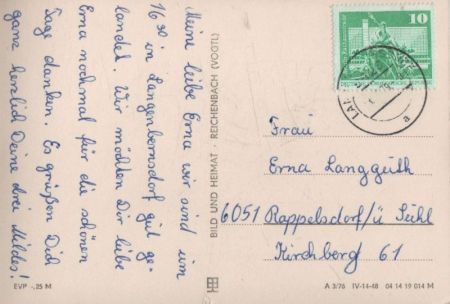 Meine liebe Erna wir sind um
16 30 in Langenbernsdorf gut ge-
landet. Wir möchten Dir liebe
Erna nochmal für die schönen
Tage danken. Es grüßen Dich
ganz herzlich Deine drei Mildes!
EVP -,25 M
BILD UND HEIMAT · REICHENBACH (VOGTL)
10
Frau
Erna Langguth
6051 Rappelsdorf/ü Suhl
Kirchberg 61
A 3/76 IV-14-48 04 14 19 014 M